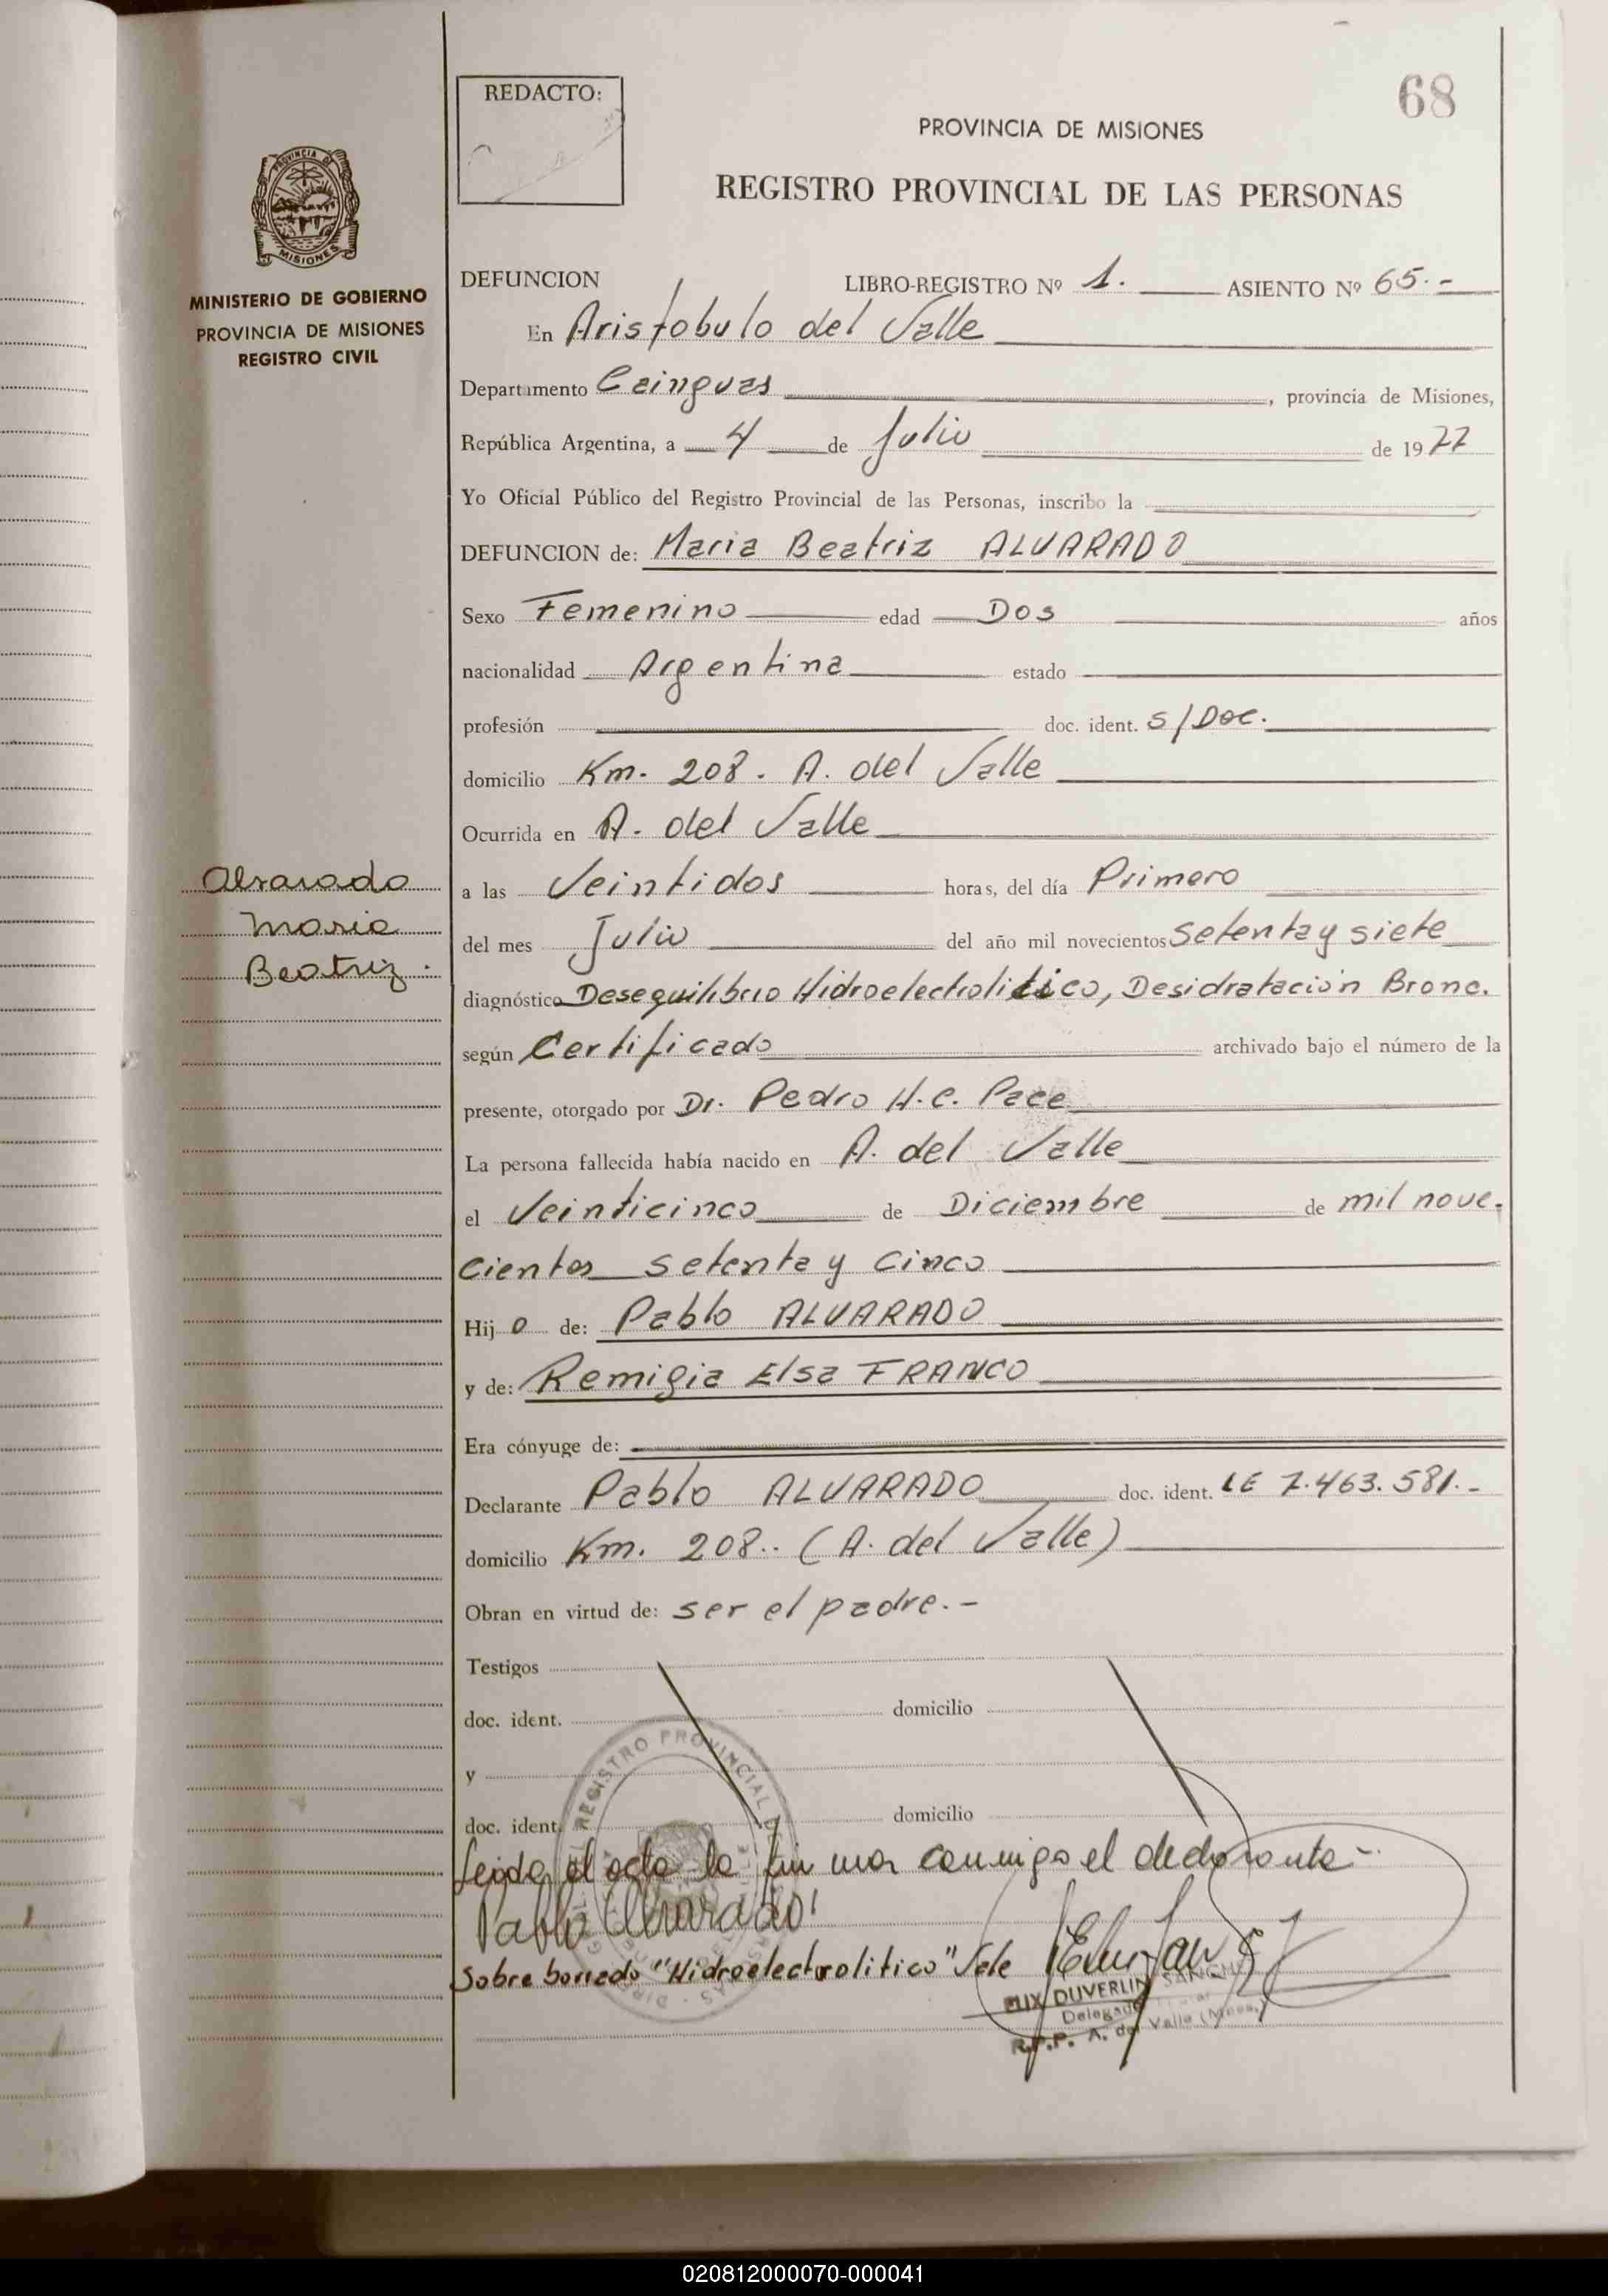 68
REDACTO:
PROVINCIA DE MISIONES
REGISTRO PROVINCIAL DE LAS PERSONAS
PROVINCIA DE
MISIONES
MINISTERIO DE GOBIERNO
PROVINCIA DE MISIONES
REGISTRO CIVIL
DEFUNCION LIBRO-REGISTRO Nº 1. ASIENTO Nº 65.-
En Aristobulo del Valle
Departamento Cainguas, provincia de Misiones,
República Argentina, a 4 de Julio de 1977
Yo Oficial Público del Registro Provincial de las Personas, inscribo la
DEFUNCION de: Maria Beatriz ALVARADO
Sexo Femenino edad Dos años
nacionalidad Argentina estado
profesión doc. ident. S/Doc.
domicilio Km. 208. A. del Valle
Ocurrida en A. del Valle
Alvarado
Maria
Beatriz.
a las Veintidos horas, del día Primero
del mes Julio del año mil novecientos setenta y siete
diagnóstico Desequilibrio Hidroelectrolitico, Desidratación Bronc.
según Certificado archivado bajo el número de la
presente, otorgado por Dr. Pedro H.C. Pace
La persona fallecida había nacido en A. del Valle
el Veinticinco de Diciembre de mil nove.
cientos setenta y cinco
Hijo de: Pablo ALVARADO
y de: Remigia Elsa FRANCO
Era cónyuge de:
Declarante Pablo ALVARADO doc. ident. LE 7.463.581.-
domicilio Km. 208.. (A. del Valle)
Obran en virtud de: ser el padre.-
Testigos
doc. ident. domicilio
y
doc. ident. domicilio
REGISTRO PROVINCIAL
Leida el acta la firma conmigo el declarante-
Pablo Alvarado
Sobre borrado "Hidroelectrolitico" Vale
DUVERLIN SANCHEZ
Delegado
R.P.P. A. del Valle (Mnes.)
020812000070-000041